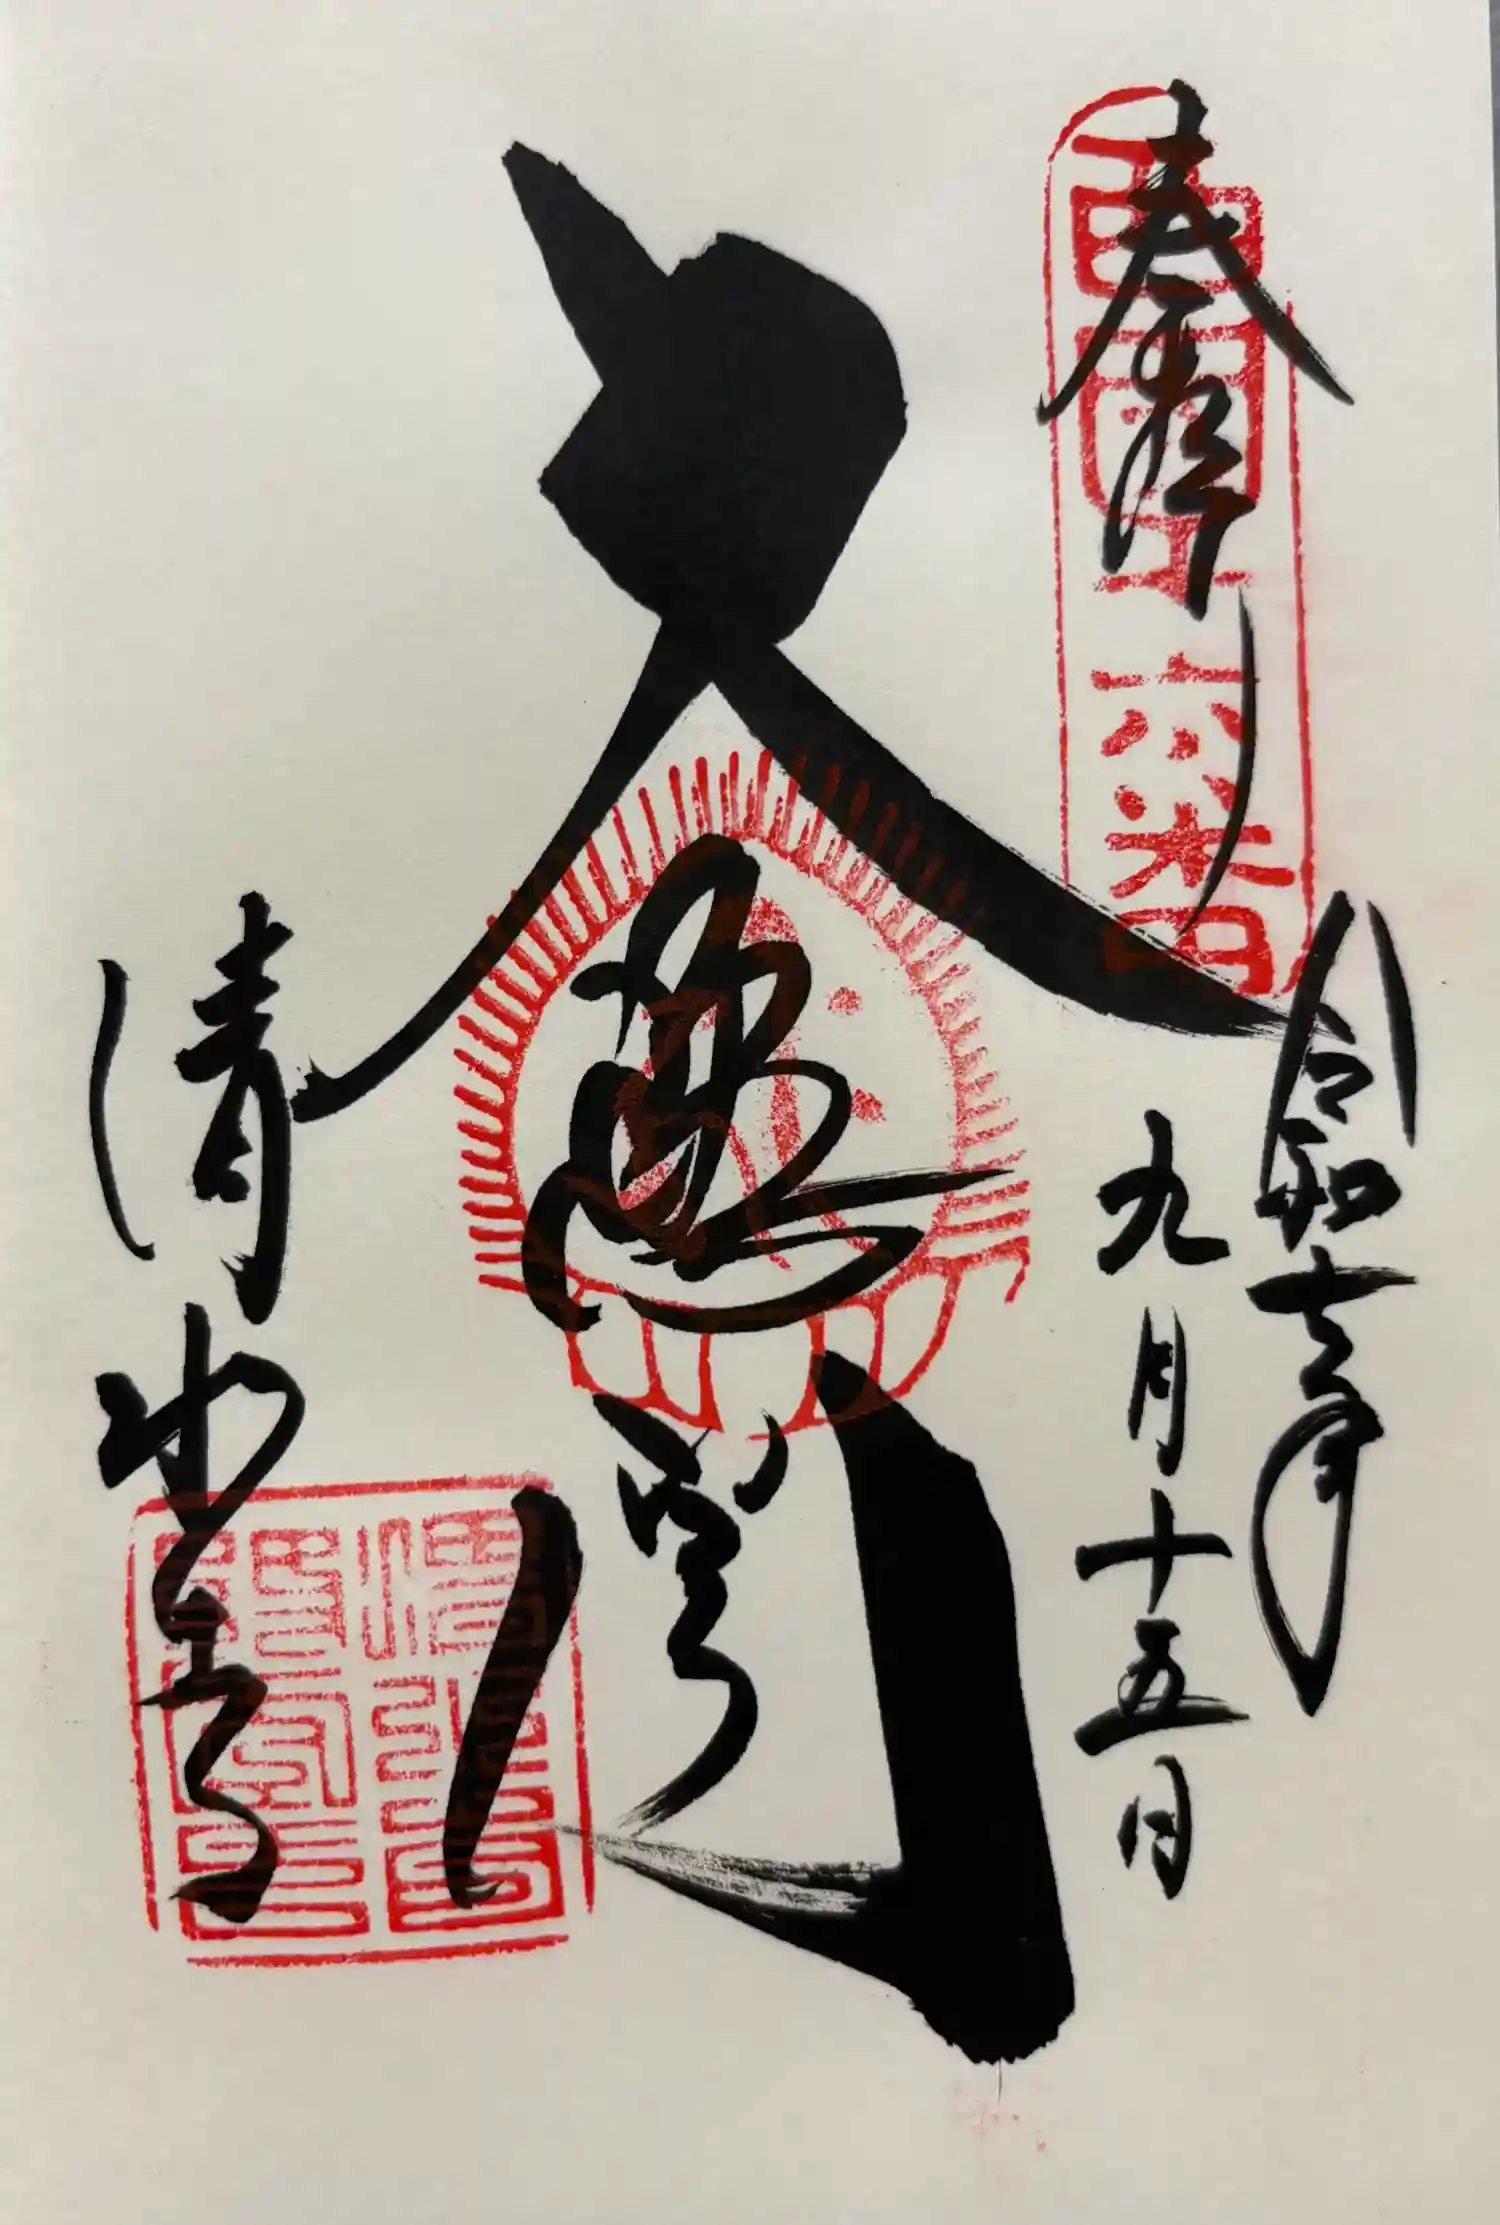 奉拝
西國十六番
令和七年
九月十五日
大悲閣
清水寺